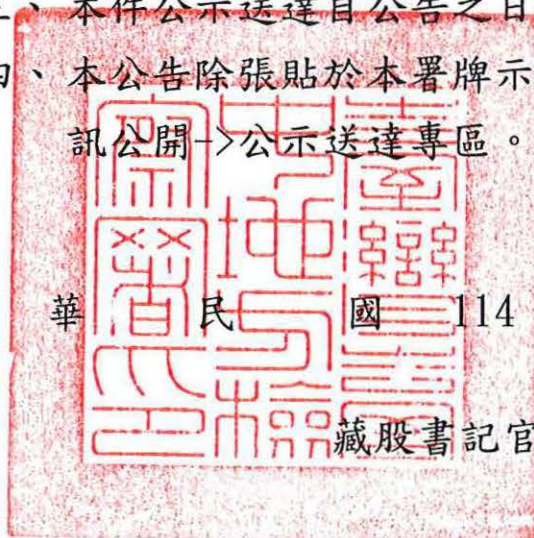 三、本件公示送達自公告之日
四、本公告除張貼於本署牌示
訊公開->公示送達專區。
華民國114
藏股書記官